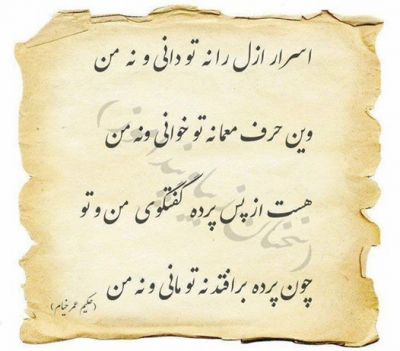 اسرار ازل را نه تو دانی و نه من
وین حرف معما نه تو خوانی و نه من
هست از پس پرده گفتگوی من و تو
چون پرده برافتد نه تو مانی و نه من
(حکیم عمر خیام)